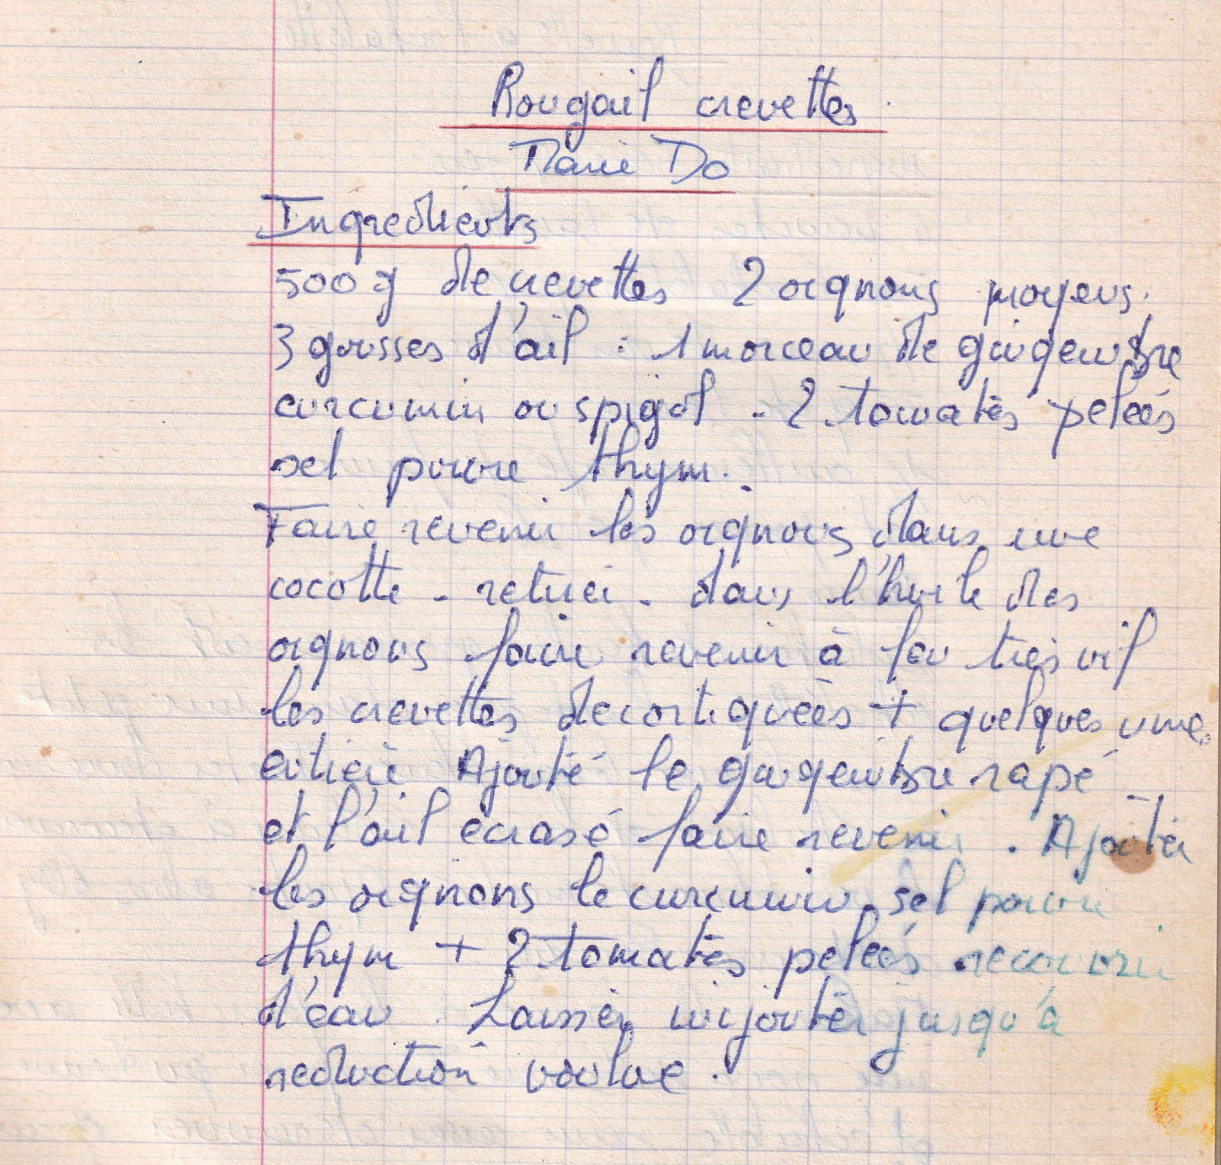 Rougail crevettes.
Marie Do
Ingredients
500 g de crevettes 2 oignons moyens.
3 gousses d'ail : 1 morceau de gingembre
curcumin ou spigol - 2 tomates pelées
sel poivre thym.
Faire revenir les oignons dans une
cocotte - retirer - dans l'huile des
oignons faire revenir à feu très vif
les crevettes decortiquées + quelques unes
entière Ajouté le gingembre rapé
et l'ail écrasé faire revenir. Ajouter
les oignons le curcumin. sel poivre
thym + 2 tomates pelées recouvrir
d'eau. Laisser mijoter jusqu'à
reduction voulue.